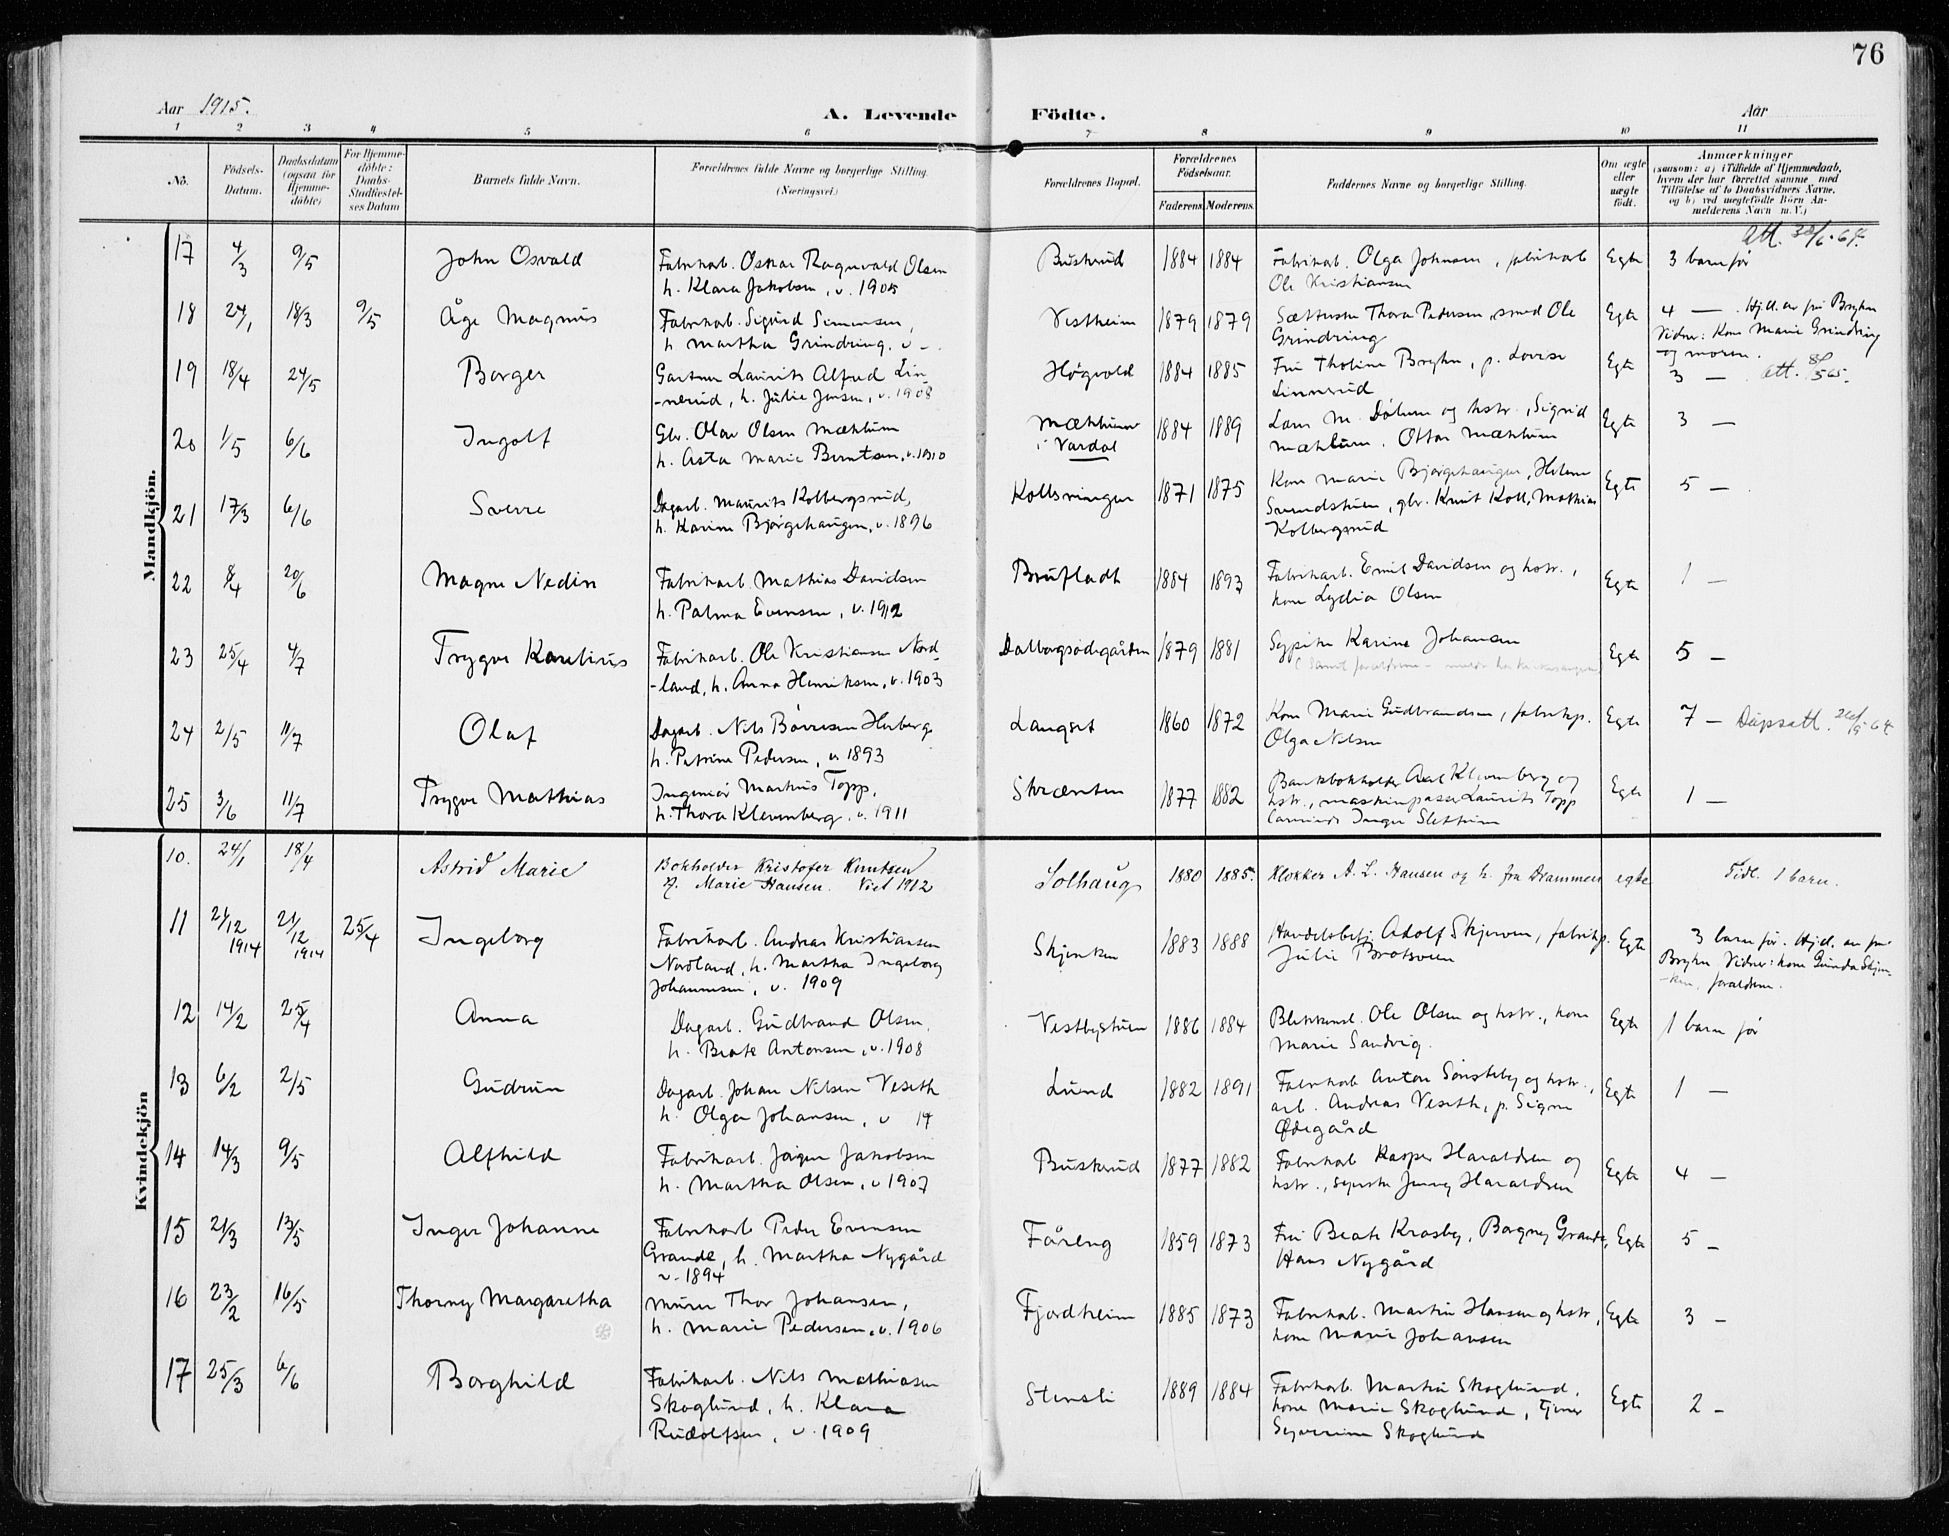 76
Aar 1915.
A. Levende Födte.
Aar
1 2 3 4 5 6 7 8 9 10 11
No.
Födsels-Datum.
Daabsdatum (ogsaa for Hjemme-döbte)
For Hjemme-döbte: Daabs-Stadfæstel-ses Datum
Barnets fulde Navn.
Forældrenes fulde Navne og borgerlige Stilling. (Næringsvei.)
Forældrenes Bopæl.
Forældrenes Födselsaar.
Faderens. Moderens.
Faddernes Navne og borgerlige Stilling.
Om ægte eller uægte födt.
Anmærkninger
(saasom: a) i Tilfælde af Hjemmedaab,
hvem der har forrettet samme med
Tilföielse af to Daabsvidners Navne,
og b) ved uegtefödte Börn An-
melderens Navn m. V.)
Mandkjön.
17 4/3 9/5 John Osvald
Fabrikarb. Oskar Ragnvald Olsen
h. Klara Jakobsen, v. 1905
Buskrud 1884 1884
Fabrikarb. Olga Johnsen, fabrikarb
Ole Kristiansen
Egte 3 barn før
18 24/1 18/3 9/5 Åge Magnus
Fabrikarb. Sigurd Simensen,
h. Martha Grindring. v –
Vestheim 1879 1879
Thora Pedersen, smed Ole
Grindring
Egte 4 — . Hjd. av fru Bryhn
Vidner: Kone Marie Grindring
og moren.
19 18/4 24/5 Borger
Gartner Laurits Alfred Lin-
-nerud, h. Julie Jensen, v. 1908
Høgvold 1884 1885
Fru Tholine Bryhn, p. Lovise
Linnerud
Egte 3 —
20 1/5 6/6 Ingolf
Gbr. Olav Olsen Mæhlum
h. Asta Marie Berntsen, v. 1910
Mæhlum
i Vardal 1884 1889
Lars M. Dølum og hstr., Sigrid
Mæhlum. Ottar Mæhlum
Egte 3 —
21 17/3 6/6 Sverre
Dagarb. Maurits Kolbergsrud,
h. Karine Bjørgehaugen, v. 1896
Kollsveningen 1871 1875
Kone Marie Bjørgehaugen, Helene
Svendstuen, gbr. Knut Koll, Mathias
Kolbergsrud
Egte 5 —
22 8/4 20/6 Magne Nedin
Fabrikarb. Mathias Davidsen
h. Palma Evensen, v. 1912
Brufladt 1884 1893
Fabrikarb. Emil Davidsen og hstr.,
kone Lydia Olsen
Egte 1 —
23 25/4 4/7 Trygve Karelius
Fabrikarb. Ole Kristiansen Nord-
-land, h. Anna Henriksen, v. 1903
Dalborgsødegården 1879 1881
Sypike Karine Johansen
Egte 5 —
24 2/5 11/7 Olaf
Dagarb. Nils Børresen Herberg
h. Petrine Pedersen, v. 1893
Langset 1860 1872
Kone Marie Gudbrandsen, fabrikp.
Olga Nilsen
Egte 7 — Dåpsatt.
25 3/6 11/7 Trygve Mathias
Ingeniør Markus Topp,
h. Thora Klevenberg. v. 1911
Skrænten 1877 1882
Bankbokholder Aksel Klevenberg og
hstr., maskinpasser Laurits Topp
Inger Slettum
Egte 1 —
Kvindekjön
10. 24/1 18/4 Astrid Marie
Bokholder Kristofer Knutsen
h. Marie Hansen. Viet 1912
Solhaug 1880 1885.
Klokker A. L. Hansen og h. fra Drammen
egte Tidl. 1 barn.
11 21/12 1914 21/12 1914 25/4 Ingeborg
Fabrikarb. Andreas Kristiansen
Nordland, h. Martha Ingeborg
Johannesen, v. 1909
Skjenken 1883 1888
Handelsbetj. Adolf Skjerven, fabrikp.
Julie Brotsveen
Egte 3 barn før. Hjd. av fru
Bryhn. Vidner: kone Gunda Skjen-
-ken, forældrene.
12 14/2 25/4 Anna
Dagarb. Gudbrand Olsen,
h. Beate Antonsen, v. 1908
Vestbystuen 1886 1884
Blikkensl. Ole Olsen og hstr., kone
Marie Sandvig.
Egte 1 barn før
13 6/2 2/5 Gudrun
Dagarb. Johan Nilsen Veseth
h. Olga Johansen, v 14
Lund 1882 1891
Fabrikarb Anton Sønsteby og hstr.,
arb. Andreas Veseth, p. Signe
Ødegård
Egte 1 —
14 14/3 9/5 Alfhild
Fabrikarb. Jørgen Jakobsen
h. Martha Olsen, v 1907
Buskerud 1877 1882
Fabrikarb Kasper Haraldsen og
hstr., syerske Jenny Haraldsen
Egte 4 —
15 21/3 13/5 Inger Johanne
Fabrikarb Peder Evensen
Grande, h. Martha Nygård
v. 1894
Fåreng 1859 1873
Fru Beate Krosby, Borgny Grande,
Hans Nygård
Egte 5 —
16 23/2 16/5 Thorney Margaretha
Murer Thor Johansen,
h. Marie Pedersen, v. 1906
Fjordheim 1885 1873
Fabrikarb. Martin Hansen og hstr.,
kone Marie Johansen
Egte 3 —
17 25/3 6/6 Borghild
Fabrikarb. Nils Mathiasen
Skoglund, h. Klara
Rudolfsen, v. 1909
Stensli 1889 1884
Fabrikarb. Martin Skoglund,
kone Marie Skoglund, tjener
Severine Skoglund
Egte 2 —